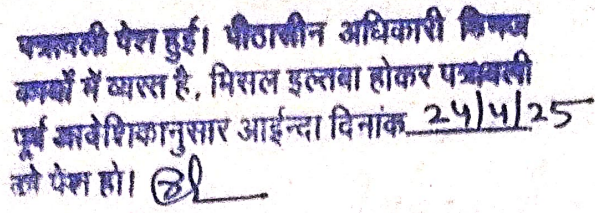 पत्रावली पेश हुई। पीठासीन अधिकारी विभिन्न
कार्यो में व्यस्त है, मिसल इल्तवा होकर पत्रावली
पूर्व आदेशिकानुसार आईन्दा दिनांक 24/4/25
को पेश हो।